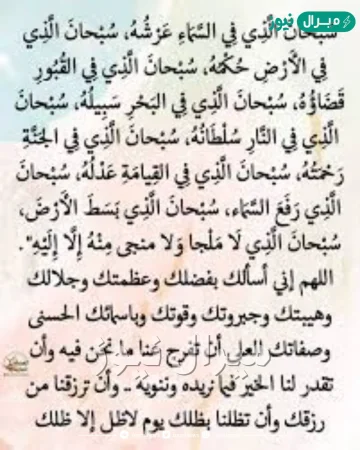 برال نيوز
سُبْحانَ الَّذِي فِي السَّمَاءِ عَرْشُهُ، سُبْحانَ الَّذِي
فِي الأَرْضِ حُكْمُهُ، سُبْحانَ الَّذِي فِي القُبُورِ
قَضَاؤُهُ، سُبْحانَ الَّذِي فِي البَحْرِ سَبِيلُهُ، سُبْحانَ
الَّذِي فِي النَّارِ سُلْطَانُهُ، سُبْحانَ الَّذِي فِي الجَنَّةِ
رَحْمَتُهُ، سُبْحانَ الَّذِي فِي القِيامَةِ عَدْلُهُ، سُبْحانَ
الَّذِي رَفَعَ السَّمَاء، سُبْحانَ الَّذِي بَسَطَ الأَرْضَ،
سُبْحانَ الَّذِي لَا مَلْجا وَلا منجى مِنْهُ إِلَّا إِلَيْهِ".
اللهم إني أسألك بفضلك وعظمتك وجلالك
وهيبتك وجبروتك وقوتك وباسمائك الحسنى
وصفاتك العلى أن تفرج عنا ما نحن فيه وأن
تقدر لنا الخير فيما نريده وننويه .. وأن ترزقنا من
رزقك وأن تظلنا بظلك يوم لاظل إلا ظلك